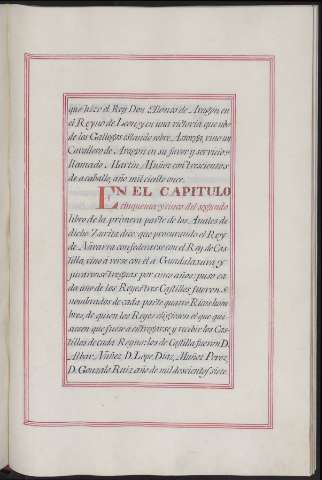 que hizo el Rey Don Alonso de Aragon en
el Reyno de Leon, y en una victoria que ubo
de los Gallegos estando sobre Astorga, vino un
Cavallero de Aragon en su favor y servicio
llamado Martin Muñoz con trescientos
de a caballo, año mil ciento once.
EN EL CAPITULO
cinquenta y cinco del segundo
libro de la primera parte de los Anales de
dicho Zurita, dice que procurando el Rey
de Navarra confederarse con el Rey de Cas-
tilla, vino a verse con él a Guadalaxara, y
pusieronse treguas por cinco años; puso ca-
da uno de los Reyes tres Castillos, fueron
nombrados de cada parte quatro Ricos hom-
bres, de quien los Reyes eligiesen el que qui-
siesen que fuese a entregarse y recibir los Cas-
tillos de cada Reyno; los de Castilla fueron D.
Albar Nuñez, D. Lope Dias, Muñoz Perez,
D. Gonzalo Ruiz año de mil doscientos siete